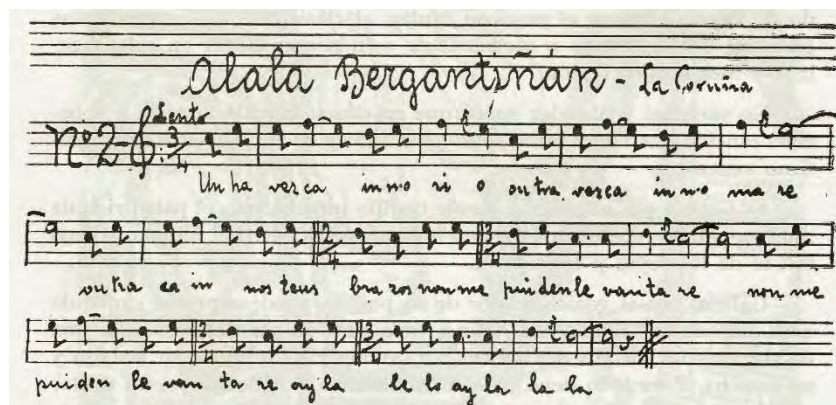 Alalá Bergantiñán - La Coruña
Nº 2- Lento 3/4
Unha vez ca in no ri o outra vez ca in no ma re
2/4 3/4
outra ca in nos teus bra zos non me puiden le vanta re non me
2/4 3/4
puiden le van ta re ay la le lo ay la la la